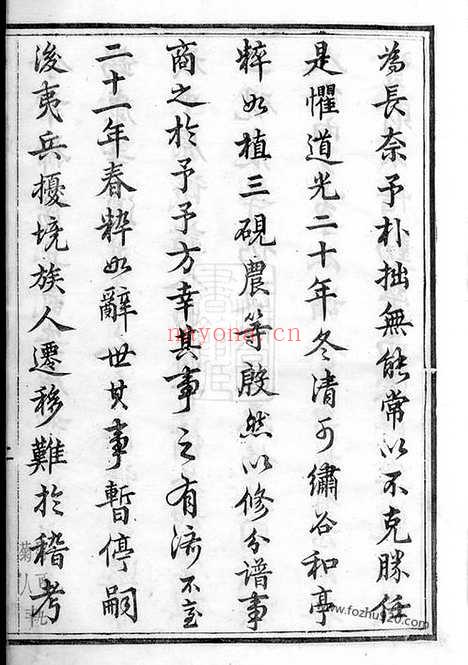 為長奈予朴拙無能常以不克勝任
是懼道光二十年冬清可繡谷和亭
粹如植三硯農等殷然以修分譜事
商之於予予方幸其事之有濟不意
二十一年春粹如辭世其事暫停嗣
後夷兵擾境族人遷移難於稽考
nayona.cn
www.fozhu920.com